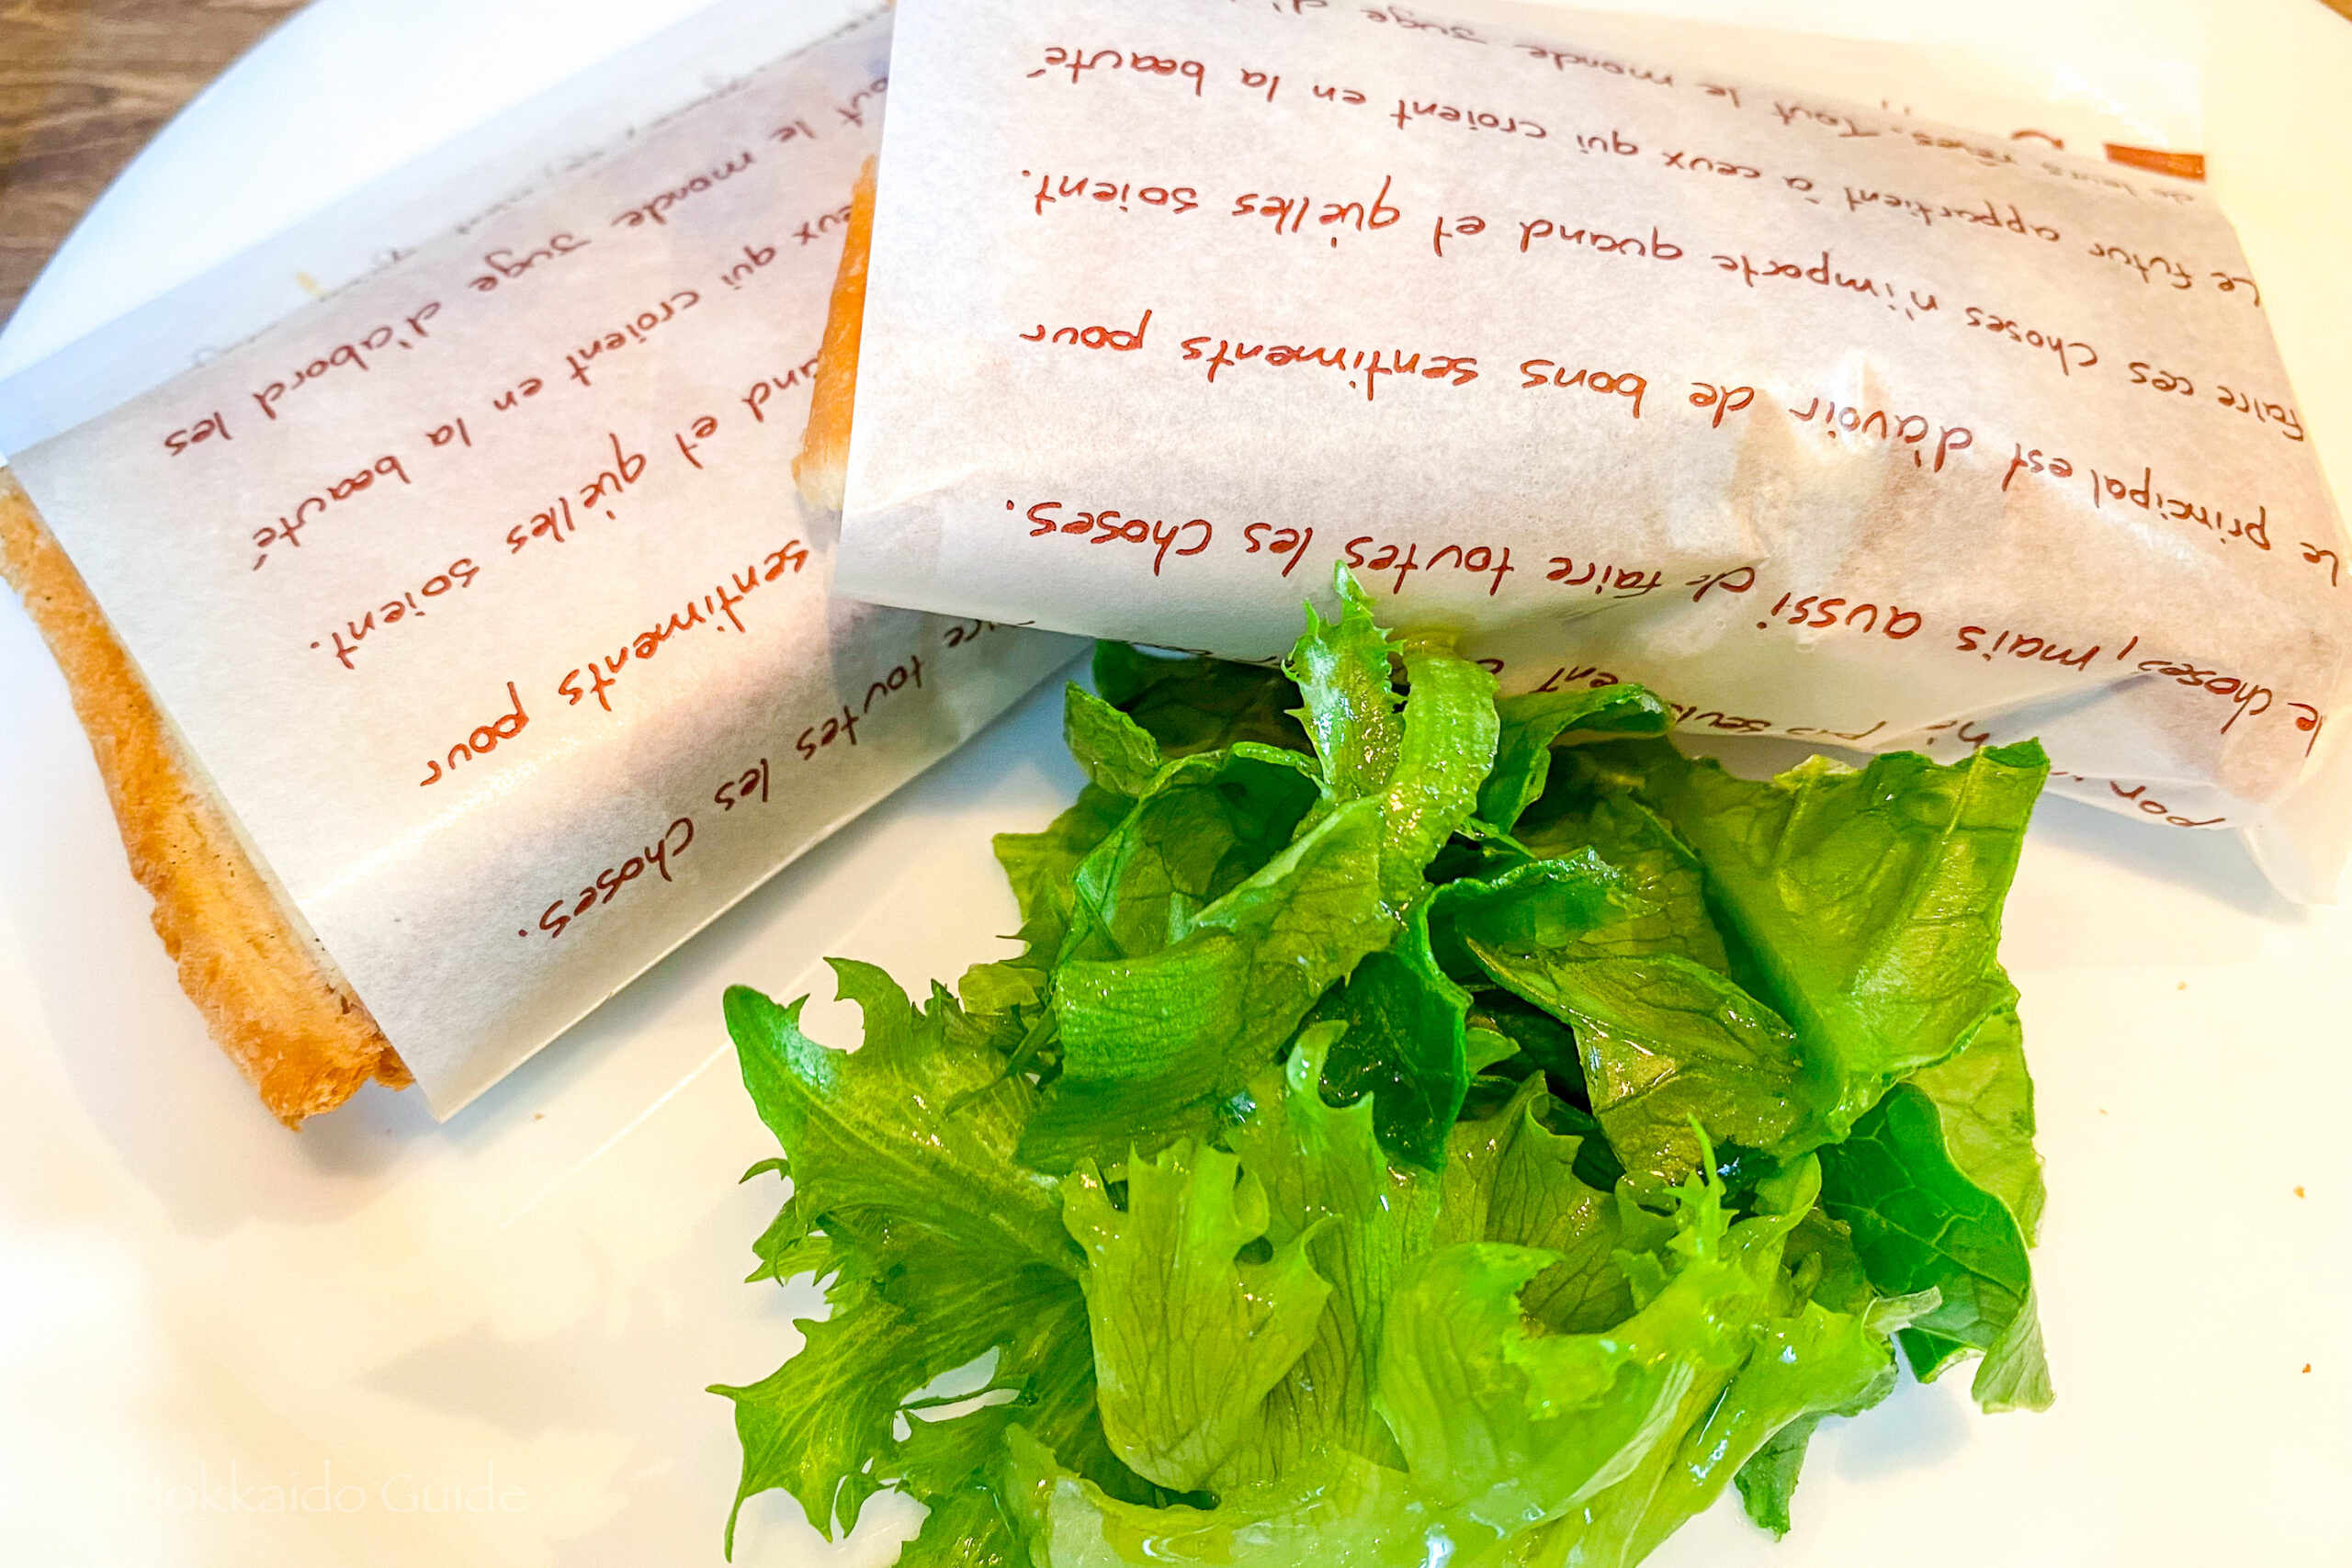 le choses, mais aussi de faire toutes les choses.
Le principal est d'avoir de bons sentiments pour
faire ces choses n'importe quand et qu'elles soient.
Le futur appartient à ceux qui croient en la beauté
de leurs rêves. Tout le monde juge d'
toutes les choses.
sentiments pour
et qu'elles soient.
qui croient en la beauté
le monde juge d'abord les
© Hokkaido Guide